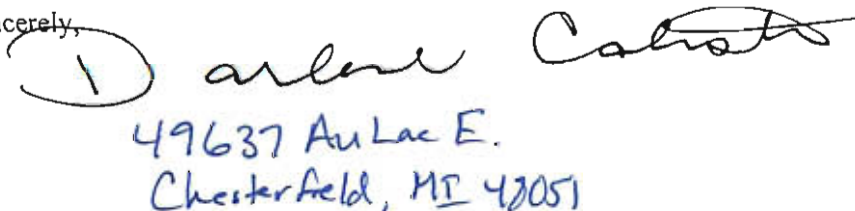 cerely,
Darlene
49637 Au Lac E.
Chesterfield, MI 48051